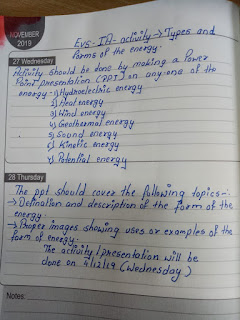 NOVEMBER
2019
Evs-IA-activity → Types and
forms of the energy.
27 Wednesday
Activity should be done by making a Power
Point presentation (PPT) on any one of the
energy:- 1) Hydroelectric energy
2) Heat energy
3) Wind energy
4) Geothermal energy
5) Sound energy
6) Kinetic energy
7) Potential energy
28 Thursday
The ppt should cover the following topics:-
→ Defination and description of the form of the
energy.
→ Proper images showing uses or examples of the
form of energy.
The activity / presentation will be
done on 4/12/19 (Wednesday)
Notes: